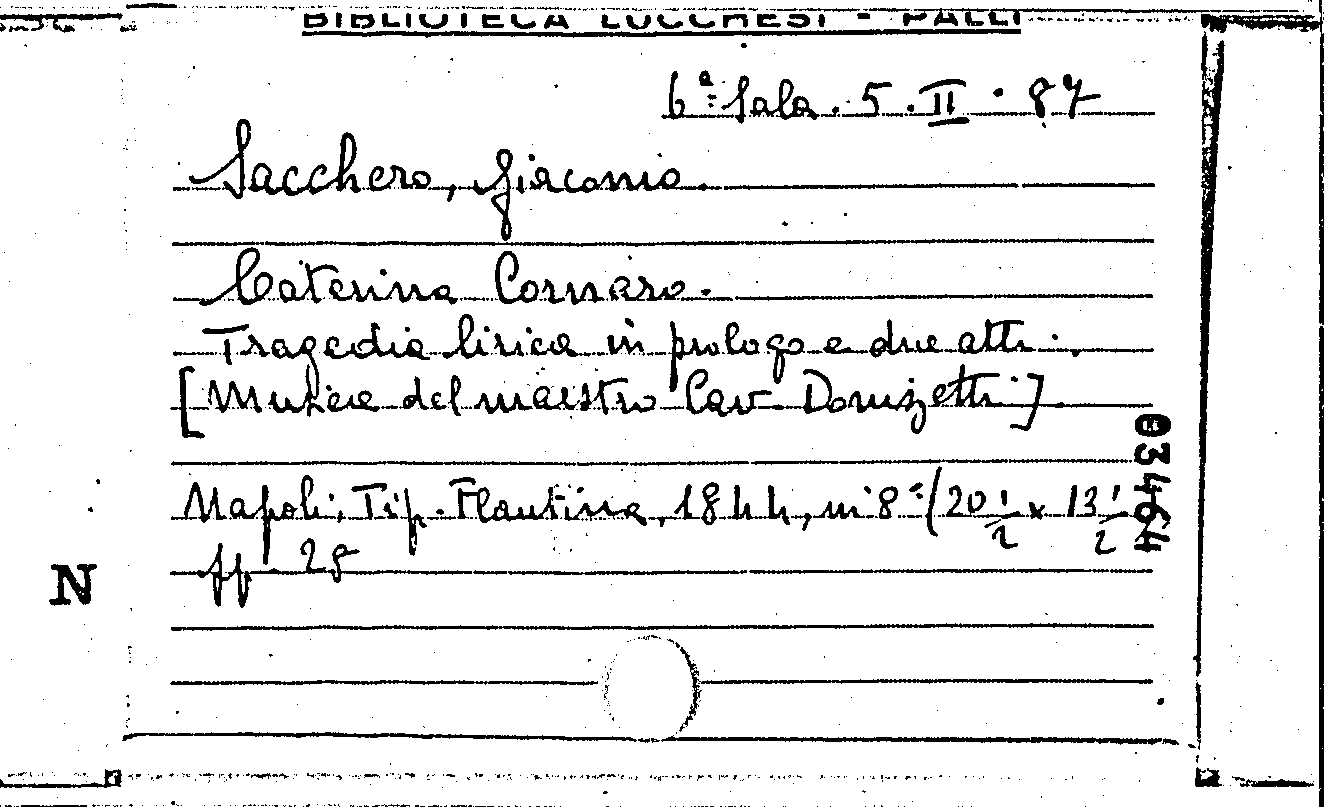 BIBLIOTECA LUCCHESI - PALLI
6ª Sala. 5. II. 87
Sacchero, Giacomo.
Caterina Cornaro.
Tragedia lirica in prologo e due atti.
[Musica del maestro Cav. Donizetti].
Napoli, Tip. Flautina, 1844, in 8º (20 1/2 x 13 1/2
pp. 28
03464
N